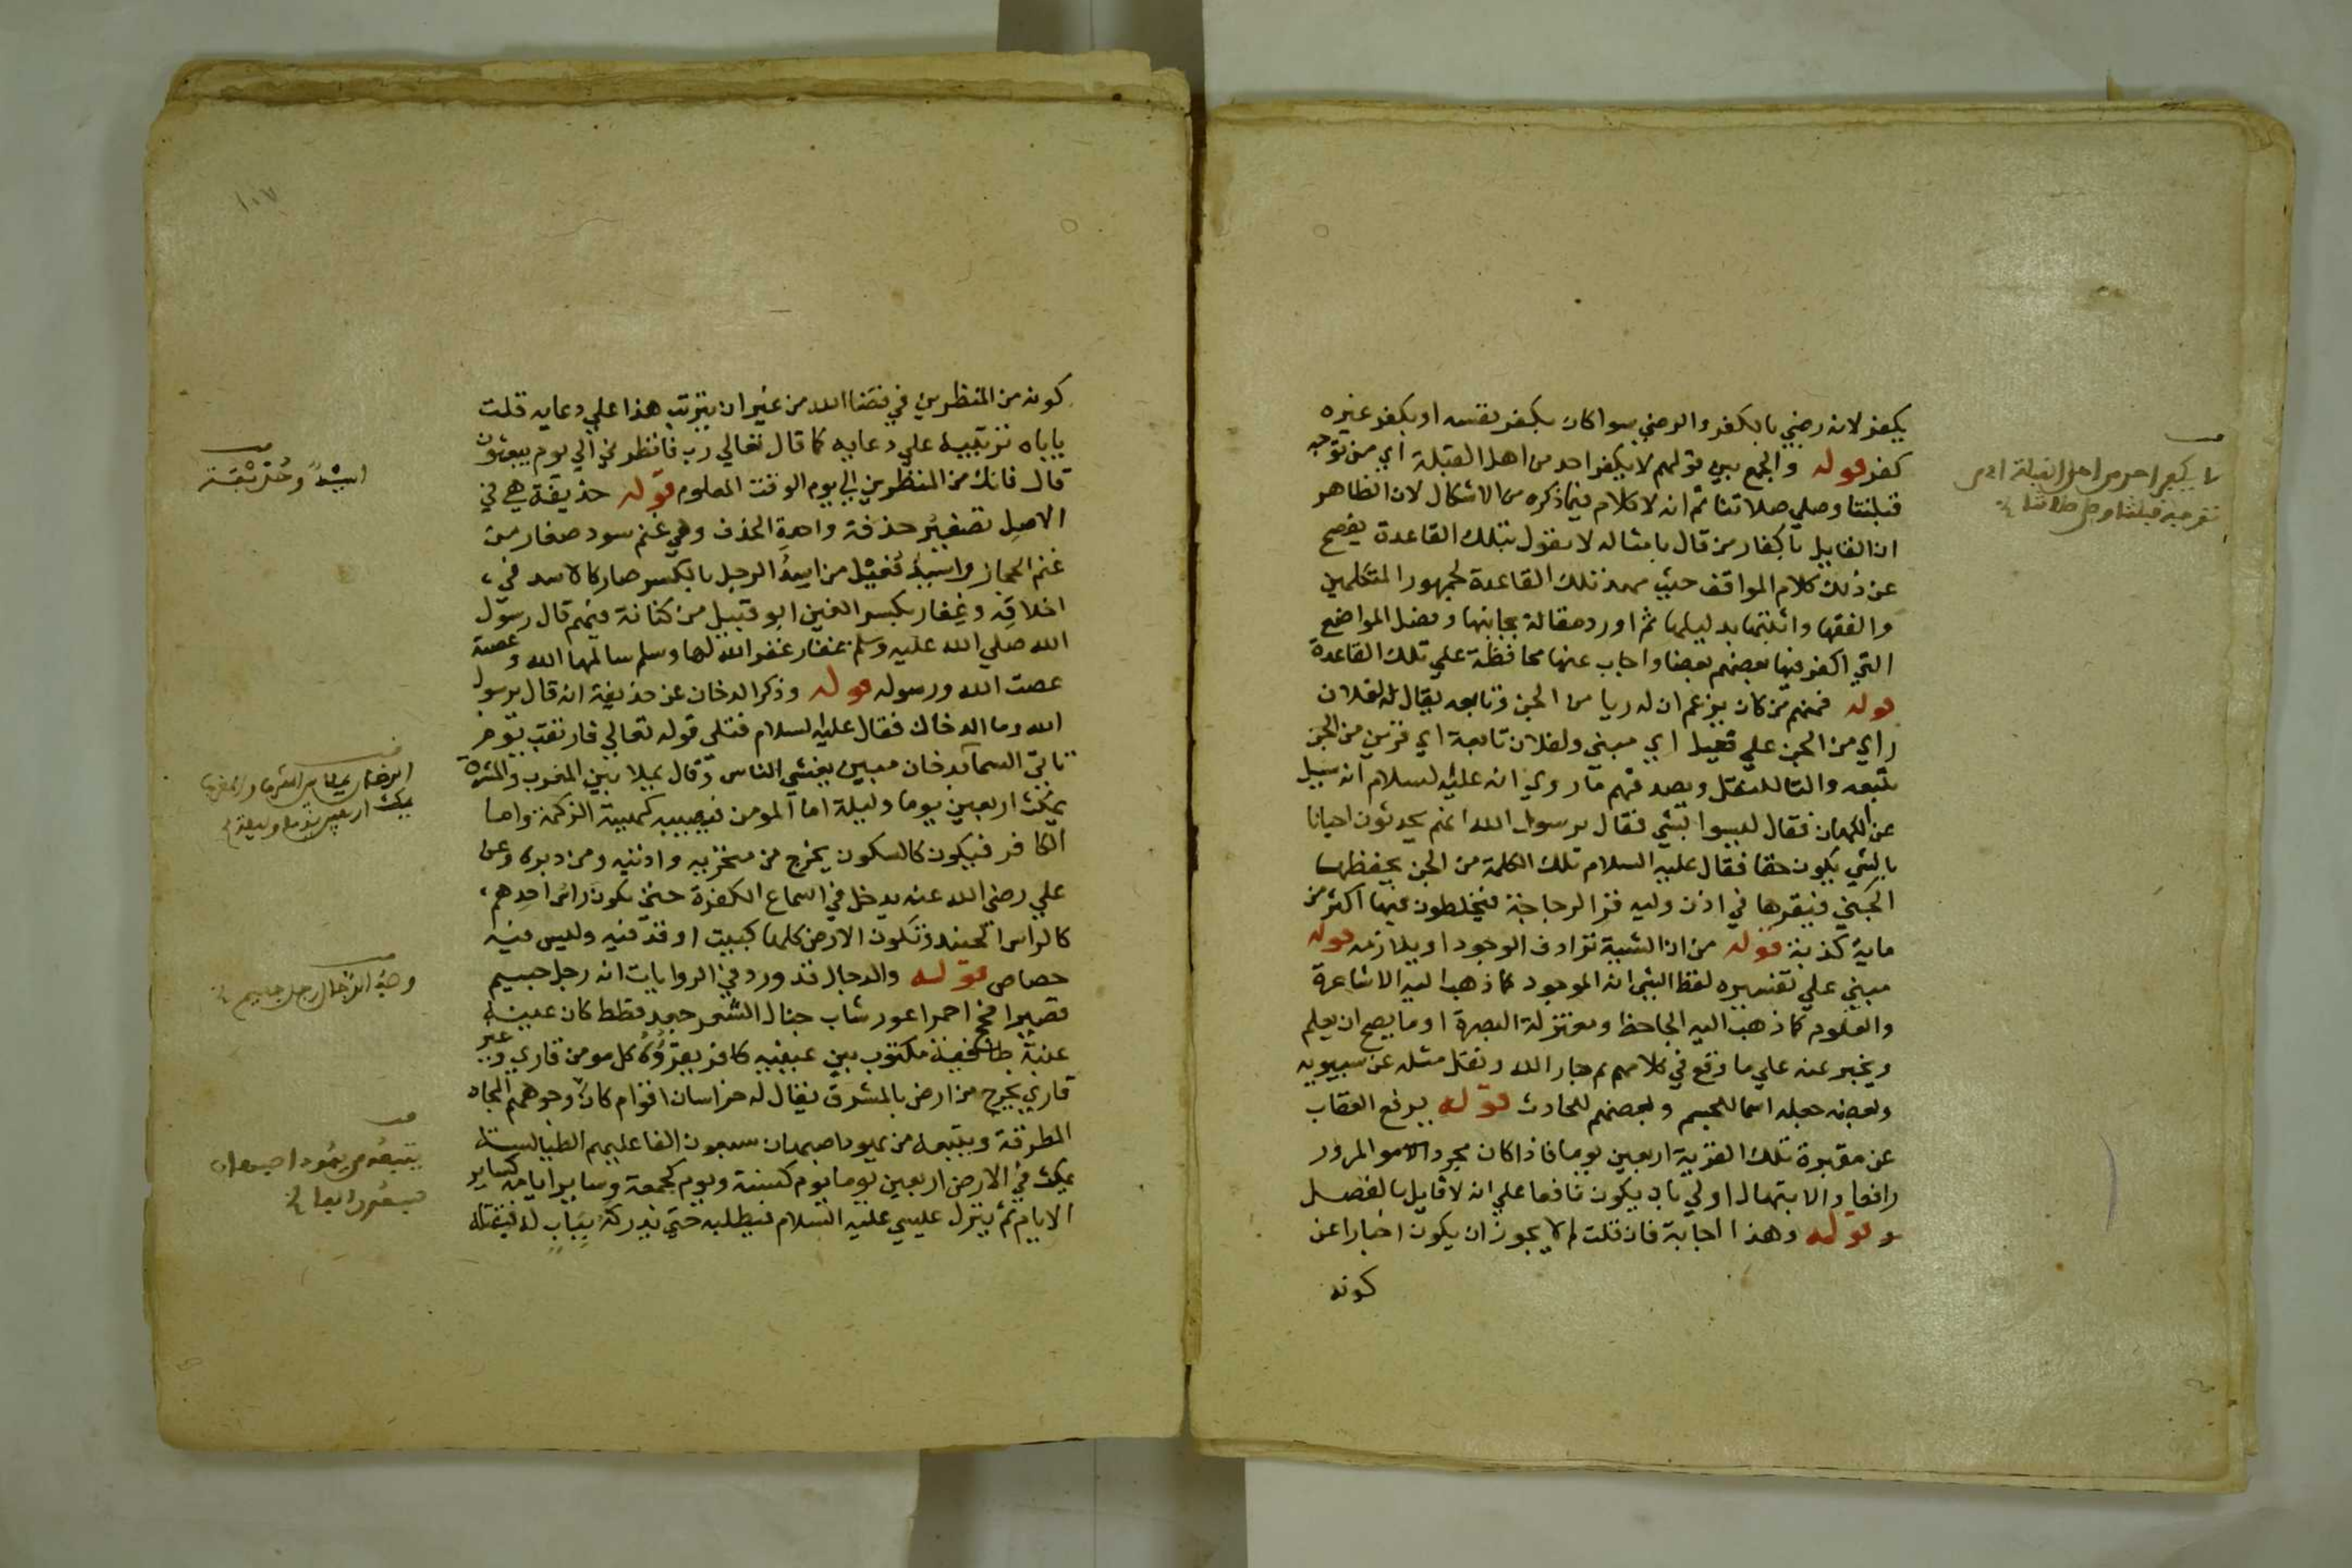 يكفر لانه رضي بالكفر والرضي سوا كان بكفر نفسه او بكفر غيره
كفر قوله والجمع بين قولهم لا يكفر احد من اهل القبلة اي من توجه
قبلتنا وصلي صلاتنا ثم انه لا كلام فيما ذكره من الاشكال لان الظاهر
ان القايل باكفار من قال بامثاله لا يقول بتلك القاعدة يفصح
عن ذلك كلام المواقف حيث مهد تلك القاعدة لجمهور المتكلمين
والفقها واثبتها بدليلها ثم اورد مقالة مجانبها وفصل المواضع
التي اكفر فيها بعضهم بعضا واجاب عنها محافظة علي تلك القاعدة
قوله فمنهم من كان يزعم ان له ريا من الجن وتابعه يقال له لفلان
راي من الجن علي فعيل اي مجني ولفلان تابعة اي قرين من الجن
يتبعه والتا للنقل ويصدقهم ما روي انه عليه السلام انه سيل
عن الكهان فقال ليسوا بشي فقال يرسول الله انهم يحدثون احيانا
بالشي يكون حقا فقال عليه السلام تلك الكلمة من الجن يحفظها
الجني فيقرها في اذن وليه قز الزجاجة فيخلطون فيها اكثر من
ماية كذبة قوله من ان الشيية ترادف الوجود او يلازمه قوله
مبني علي تفسيره لفظ الشي انه الموجود كما ذهب اليه الاشاعرة
والمعلوم كما ذهب اليه الجاحظ ومعتزلة البصرة او ما يصح ان يعلم
ويخبر عنه علي ما وقع في كلامهم جار الله ونقل مثله عن سيبويه
وبعضه جعله اسما للجسم وبعضهم للحادث قوله يرفع العقاب
عن مقبرة تلك القرية اربعين يوما فاذا كان مجرد المرور
رافعا والابتهال اولي بان يكون نافعا علي انه لا قايل بالفصل
وقوله وهذا اجابة فان قلت لم لا يجوز ان يكون اخبارا عن
كونه
لا يكفر احد من اهل القبلة اي من
توجه قبلتنا وصلي صلاتنا
كونه من المنظرين في قضا الله من غير ان يترتب هذا علي دعايه قلت
ياباه ترتيبه علي دعايه كما قال تعالي رب فانظرني الي يوم يبعثون
قال فانك من المنظرين الي يوم الوقت المعلوم قوله حذيفة هي في
الاصل تصغير حذفة واحدة الحذف وهي غنم سود صغار من
غنم الحجاز واسيد فعيل من اسد الرجل بالكسر صار كالاسد في
اخلاقه وغفار بكسر الغين ابو قبيل من كنانة فيهم قال رسول
الله صلي الله عليه وسلم غفار غفر الله لها وسلم سالمها الله وعصية
عصت الله ورسوله قوله وذكر الدخان عن حذيفة انه قال يرسول
الله وما الدخان فقال عليه السلام فتلي قوله تعالي فارتقب يوم
تاتي السمآ بدخان مبين يغشي الناس وقال يملا بين المغرب والمشرق
يمكث اربعين يوما وليلة اما المومن فيصيبه كهيية الزكمة واما
الكافر فيكون كالسكون يخرج من منخريه واذنيه ومن دبره وعن
علي رضي الله عنه يدخل في اسماع الكفرة حتي يكون راس احدهم
كالراس الحنيذ وتكون الارض كلها كبيت اوقد فيه وليس فيه
خصاص قوله والدجال قد ورد في الروايات انه رجل جسيم
قصير افحج احمر اعور شاب جفال الشعر جعد قطط كان عينه
عنبة طافية مكتوب بين عينيه كافر يقرؤه كل مومن قاري وغير
قاري يخرج من ارض بالمشرق يقال له خراسان اقوام كان وجوههم المجان
المطرقة ويتبعه من يهود اصبهان سبعون الفا عليهم الطيالسة
يمكث في الارض اربعين يوما يوم كسنة ويوم كجمعة وساير ايامه كساير
الايام ثم ينزل عليسي عليه السلام فيطلبه حتي يدركه بباب لد فيقتله
١٠٧
اسيد وحذيفة
الدخان يملا بين المشرق والمغرب
يمكث اربعين يوما وليلة
وصية الدجال رجل جسيم
يتبعه من يهود اصبهان
سبعون الفا